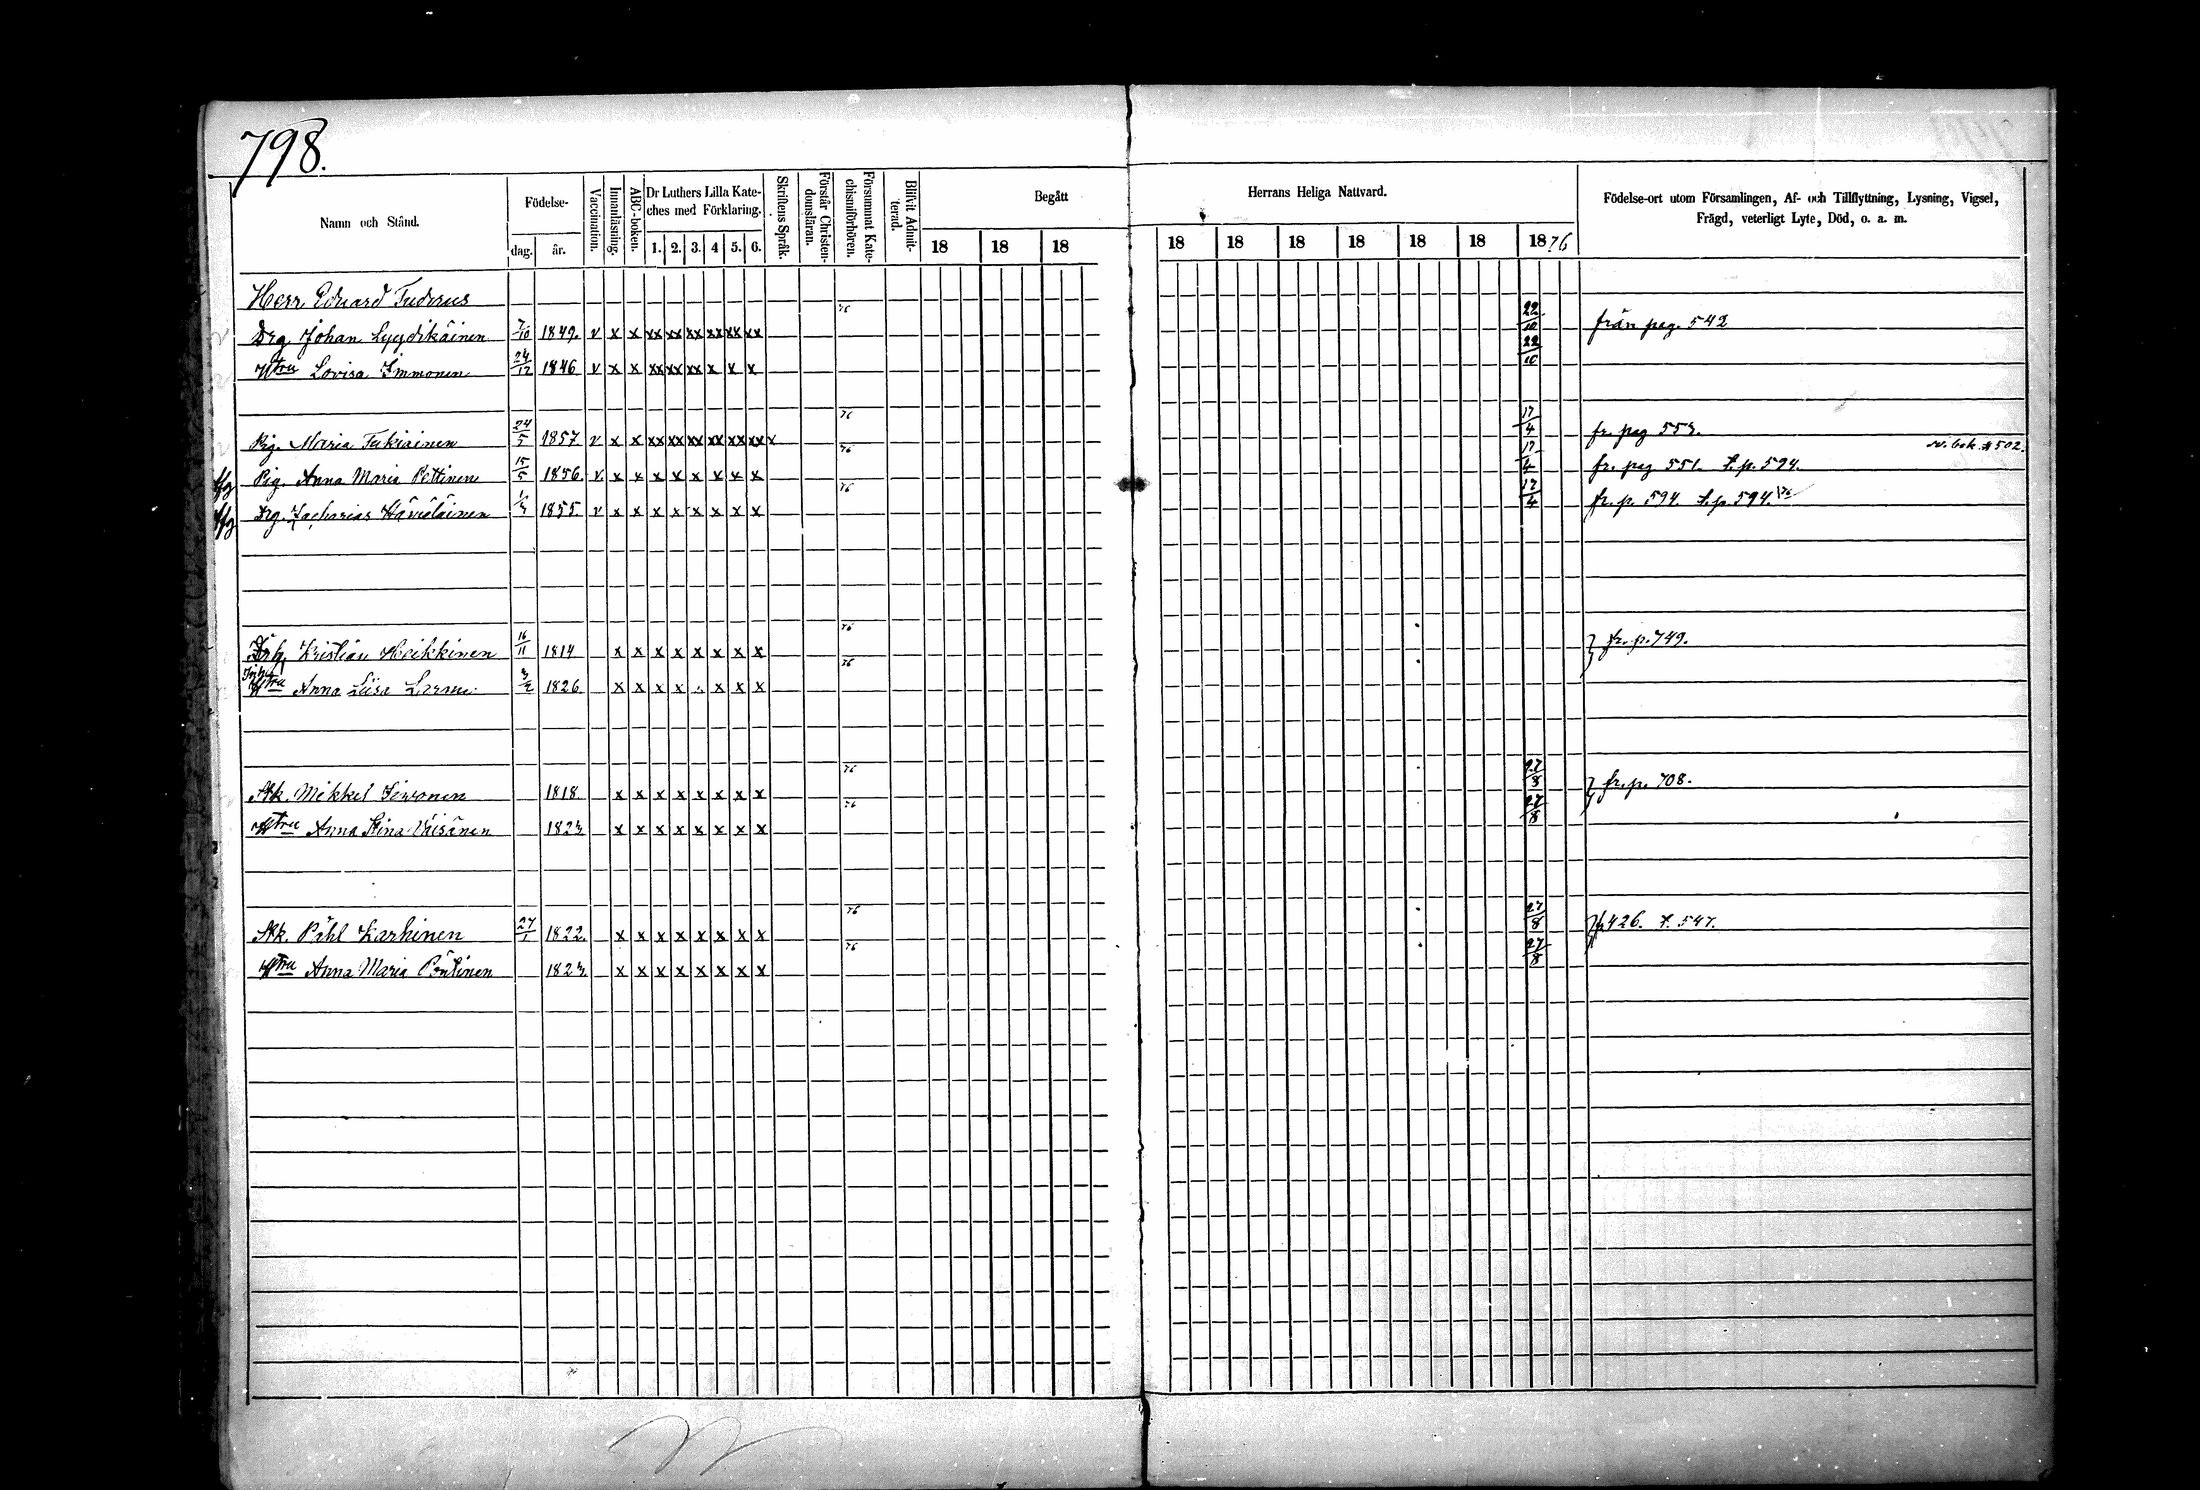 798.
Namn och Stånd.
Födelse-
dag. år.
Vaccination.
Innanläsning.
ABC-boken.
Dr Luthers Lilla Kate-
ches med Förklaring.
1. 2. 3. 4 5. 6.
Skriftens Språk.
Förstår Christen-
domsläran.
Försummat Kate-
chismiförhören.
Blifvit Admit-
terad.
Begått Herrans Heliga Nattvard.
18 18 18 18 18 18 18 18 18 1876
Födelse-ort utom Församlingen, Af- och Tillflyttning, Lysning, Vigsel,
Frägd, veterligt Lyte, Död, o. a. m.
Herr Eduard
Drg. Johan Lyydikäinen 7/10 1849. v x x xx xx xx xx xx xx 76 22/10 från pag. 542
Htru Lovisa Immonen 24/12 1846 v x x xx xx xx x x x 22/10
Pig. Maria Tukiainen 24/5 1857 v x x xx xx xx xx xx xx x 76 17/4 fr. pag 553.
Pig. Anna Maria Pettinen 15/5 1856. v. x x x x x x x x 76 17/4 fr. pag 551. t. p. 594. bok. 502.
Drg. Zacharias 1855. v x x x x x x x x 76 17/4 fr. p. 594. t. p. 594. 76
Kristian Heikkinen 16/11 1814 x x x x x x x x 76 } fr. p. 749.
Htru Anna Liisa 1826. x x x x x x x 76
Mikkel 1818. x x x x x x x x 76 27/8 } fr. p. 708.
Htru Anna Stina Väisänen 1823 x x x x x x x x 76 27/8
Påhl Karhinen 27/1 1822. x x x x x x x x 76 27/8 } 426. t. 547.
Htru Anna Maria 1823 x x x x x x x x 76 27/8